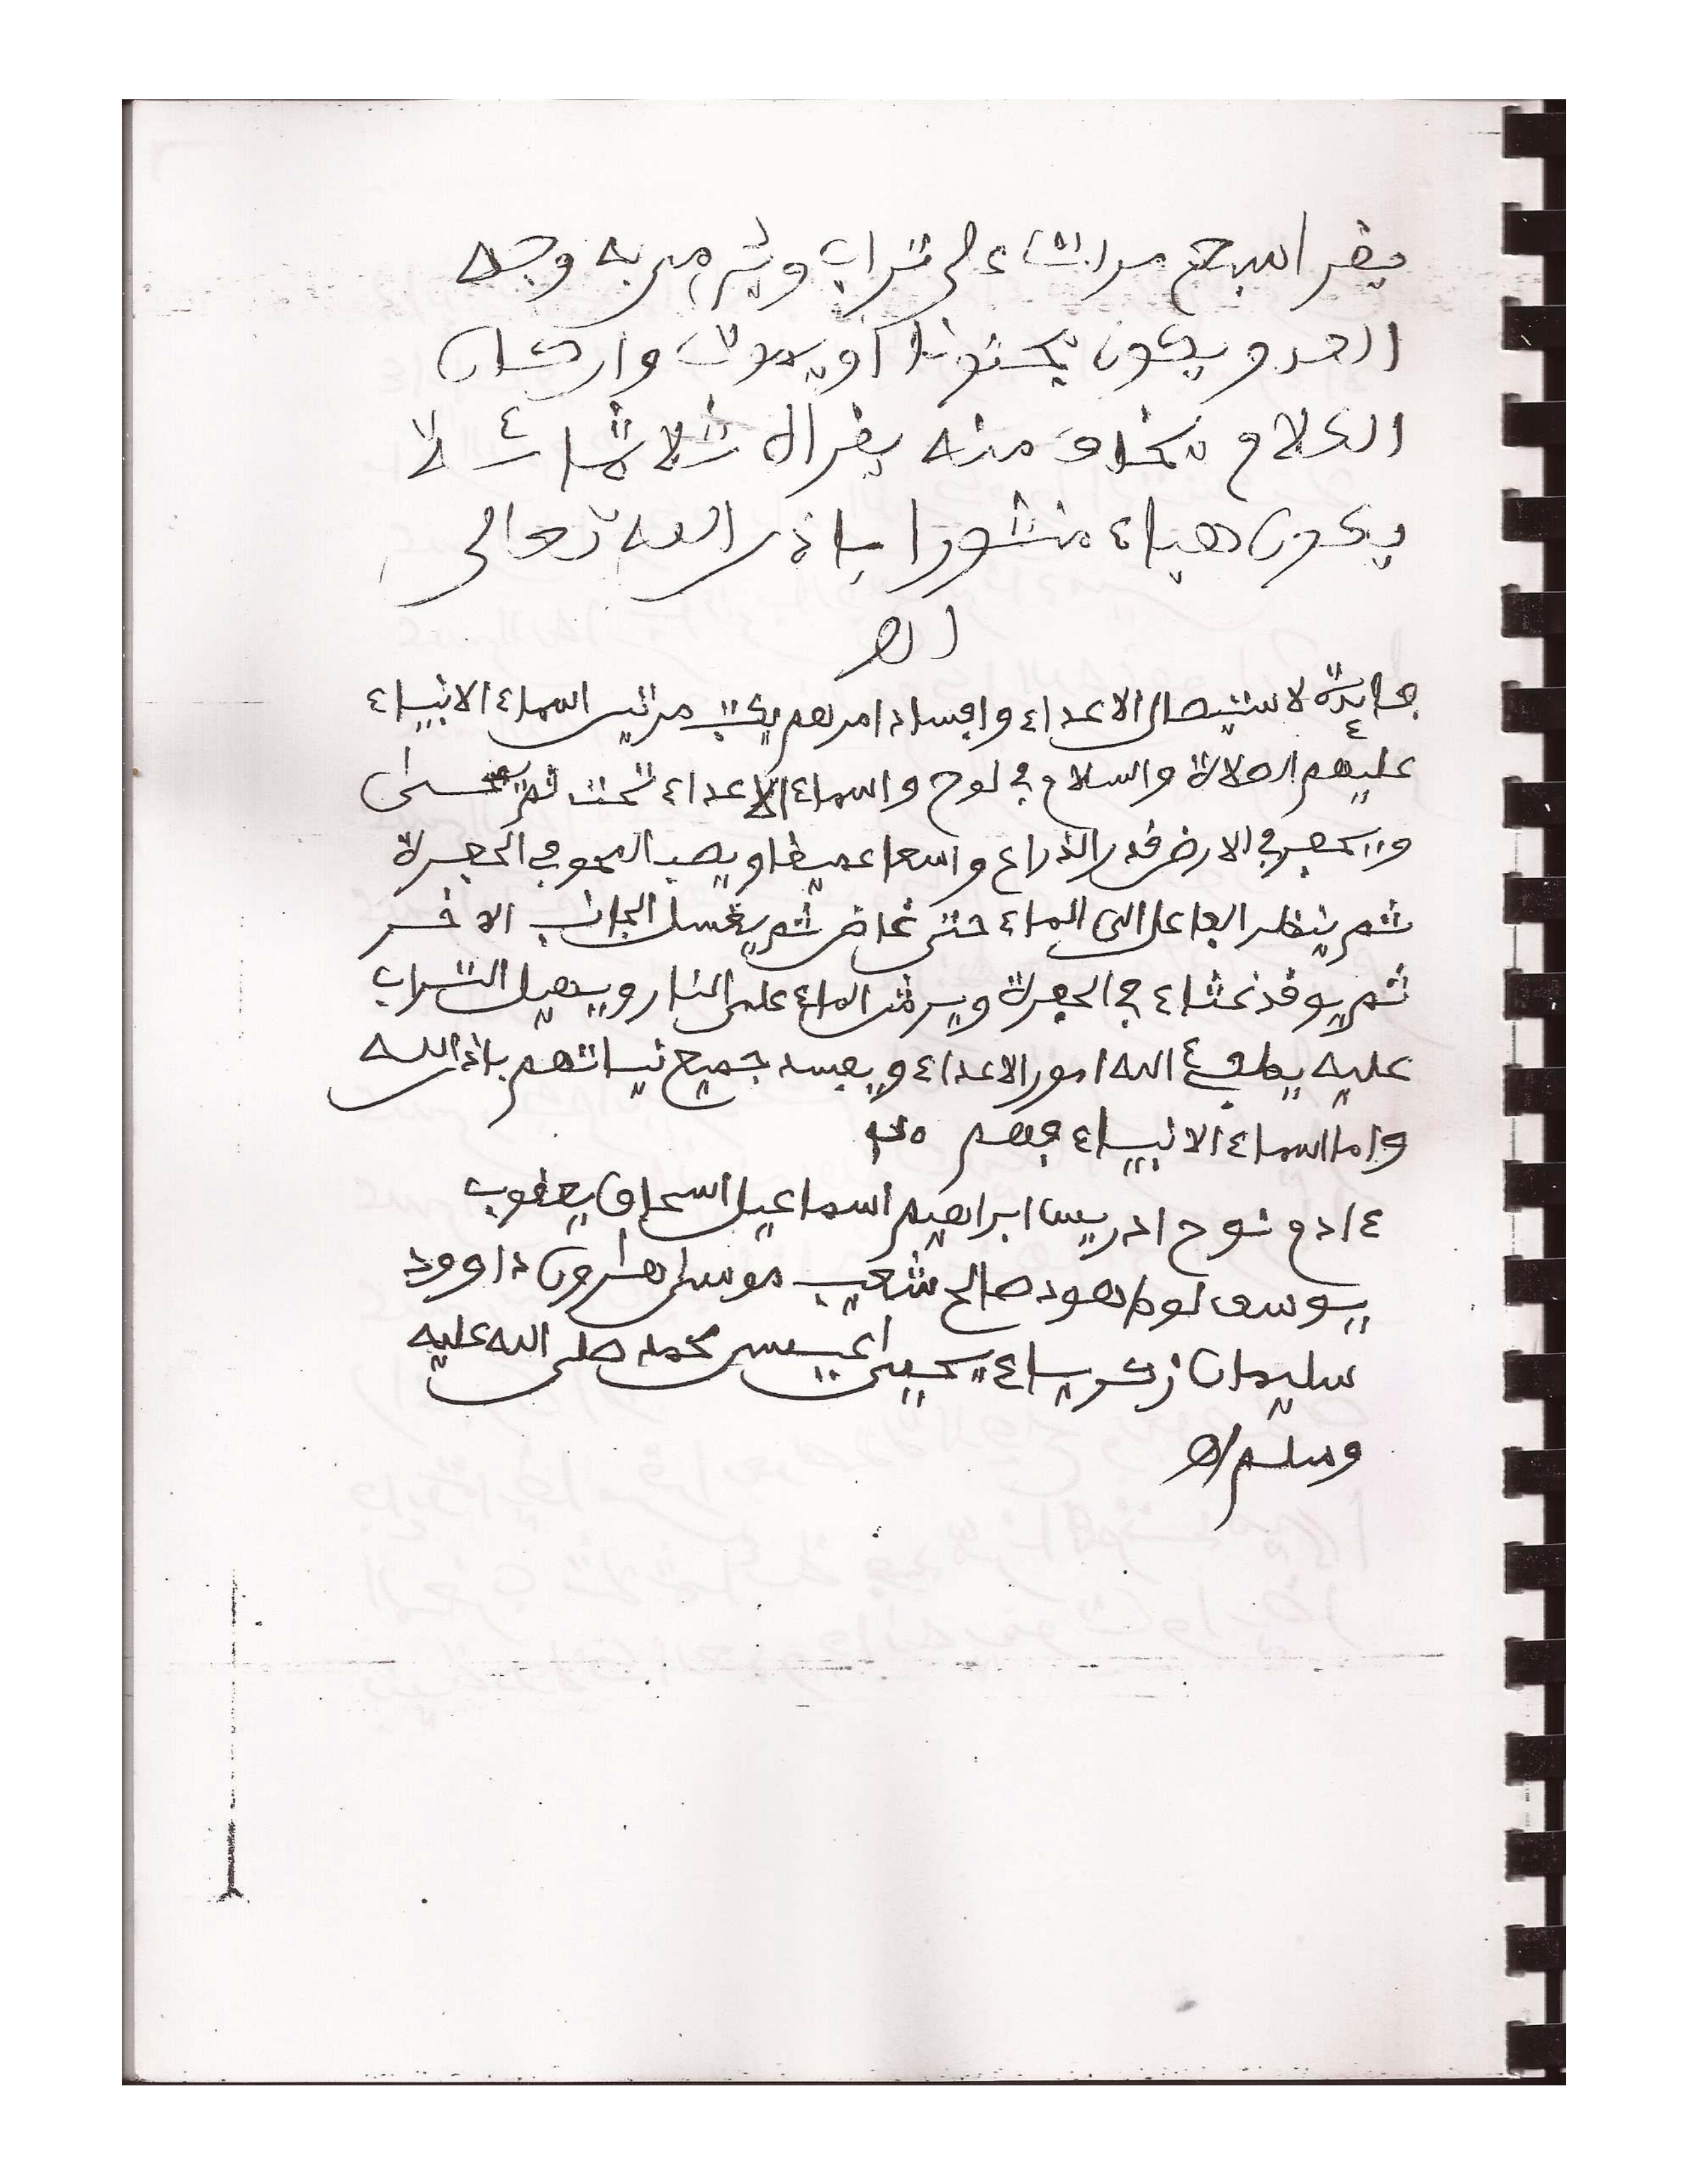 يفرا سبع مرات على تراب ويرمى به وجه
العدو يكون مجنونا أو يموت وان كان
الكلام تخاف منه يفراه ثلاثمائة لا
يكون هباء منثورا باذن الله تعالى
اهـ
فايدة لاستيصال الاعداء وافساد امرهم يكتب مرتين اسماء الانبياء
عليهم الصلاة والسلام في لوح واسماء الاعداء تحت ثم
ويحفر في الارض قدر الذراع واسعا عميفا ويصب المحو في الحفرة
ثم ينظر الفاعل الى الماء حتى غاض ثم يغسل الجانب الاخر
ثم يوفد غثاء في الحفرة ويرش الماء على النار ويهيل التراب
عليه يطفئ الله امور الاعداء ويفسد جميع نياتهم باذن الله
واما اسماء الانبياء فهم
ءادم نوح ادريس ابراهيم اسماعيل اسحاق يعفوب
يوسف لوط هود صالح شعيب موسى هارون داوود
سليمان زكرياء يحيى عيسى محمد صلى الله عليه
وسلم اهـ